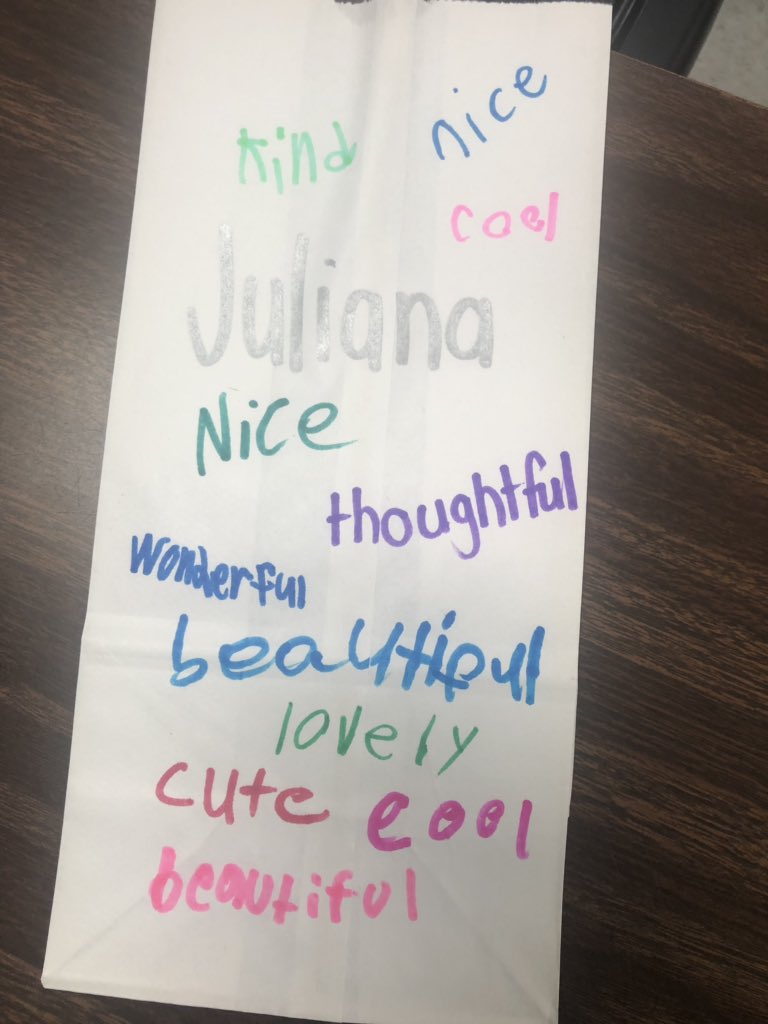 nice
kind
cool
Juliana
Nice
thoughtful
wonderful
beautiful
lovely
cute cool
beautiful